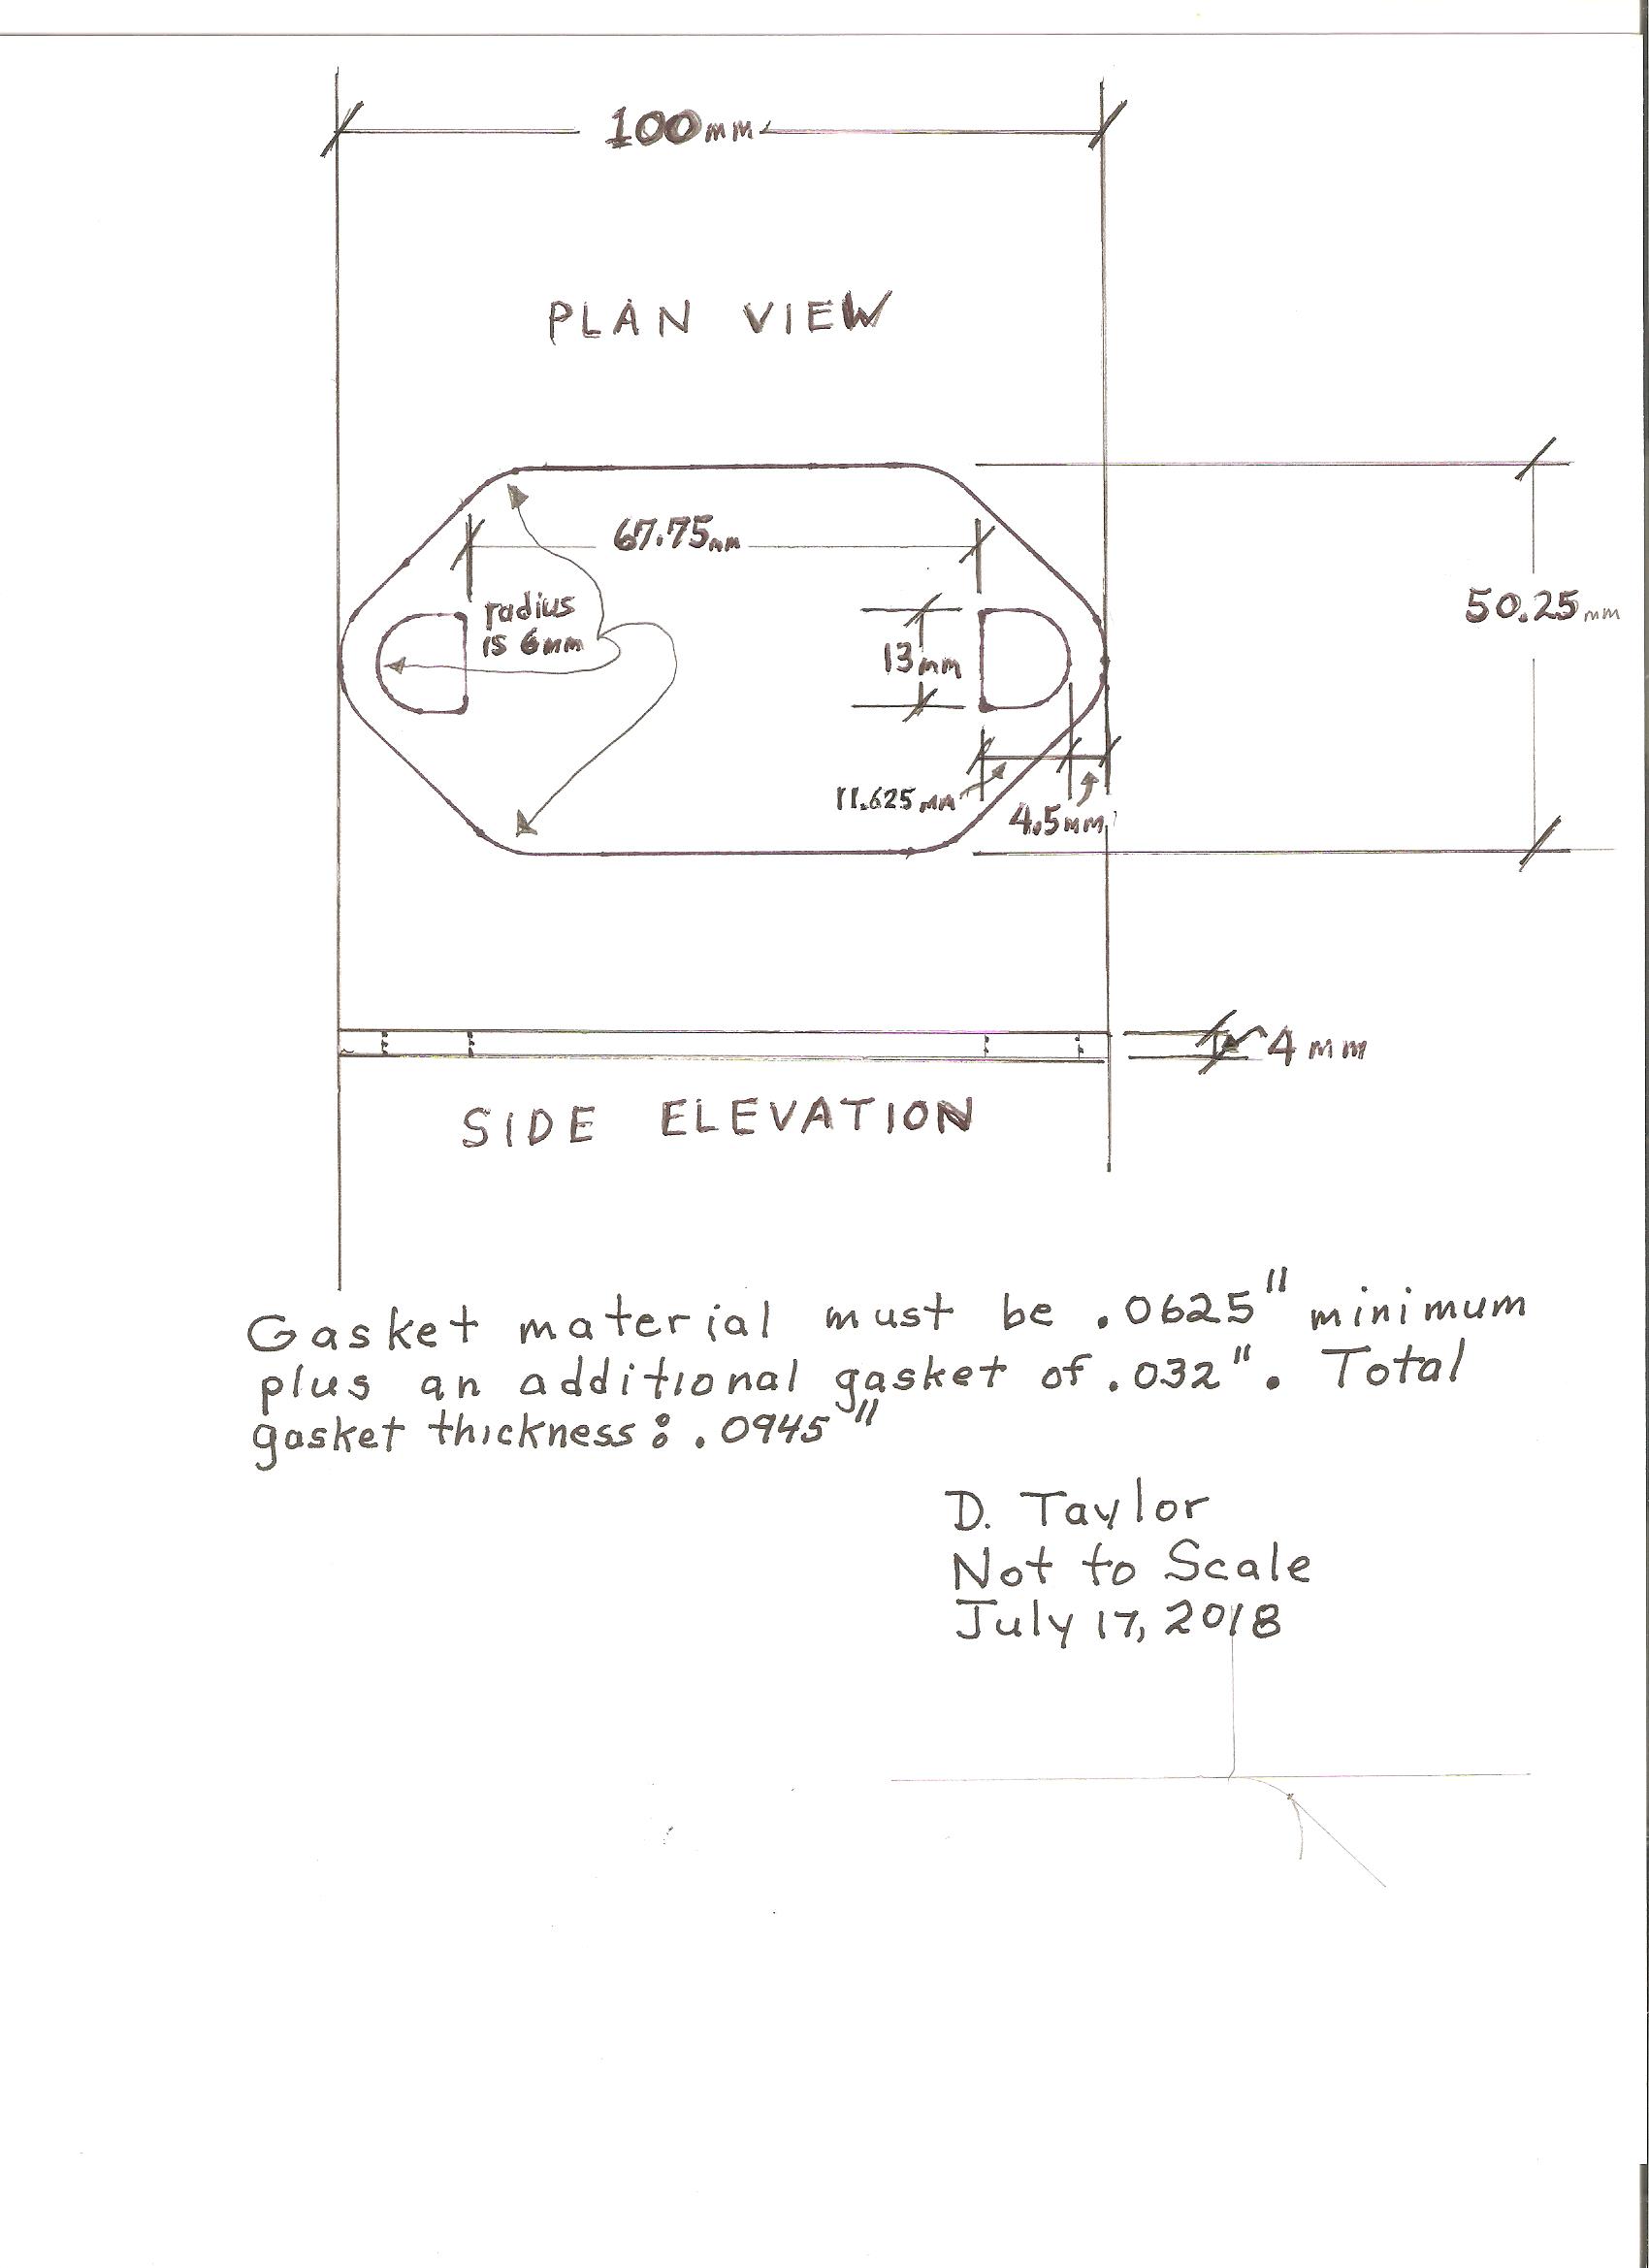 100mm
PLAN VIEW
67.75mm
radius
is 6mm
50.25mm
13mm
11.625mm
4.5mm
4mm
SIDE ELEVATION
Gasket material must be .0625" minimum
plus an additional gasket of .032". Total
gasket thickness: .0945"
D. Taylor
Not to Scale
July 17, 2018